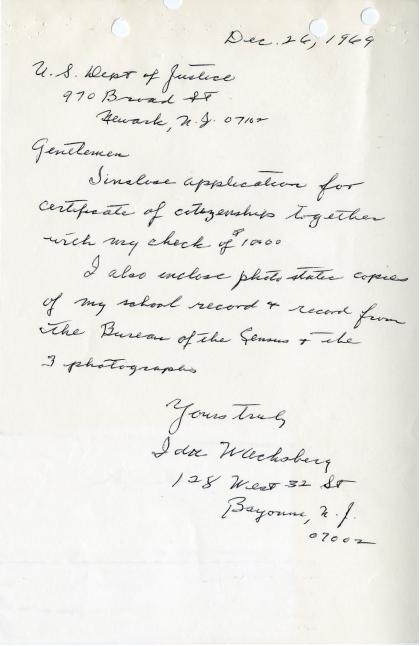 Dec. 26, 1969
U. S. Dept of Justice
970 Broad St
Newark, N.J. 07102
Gentlemen
I inclose application for
certificate of citizenship together
with my check of $10.00
I also inclose photo static copies
of my school record & record from
the Bureau of the Census & the
3 photographs
Yours truly
Ida Wachsberg
128 West 32 St
Bayonne, N.J.
07002